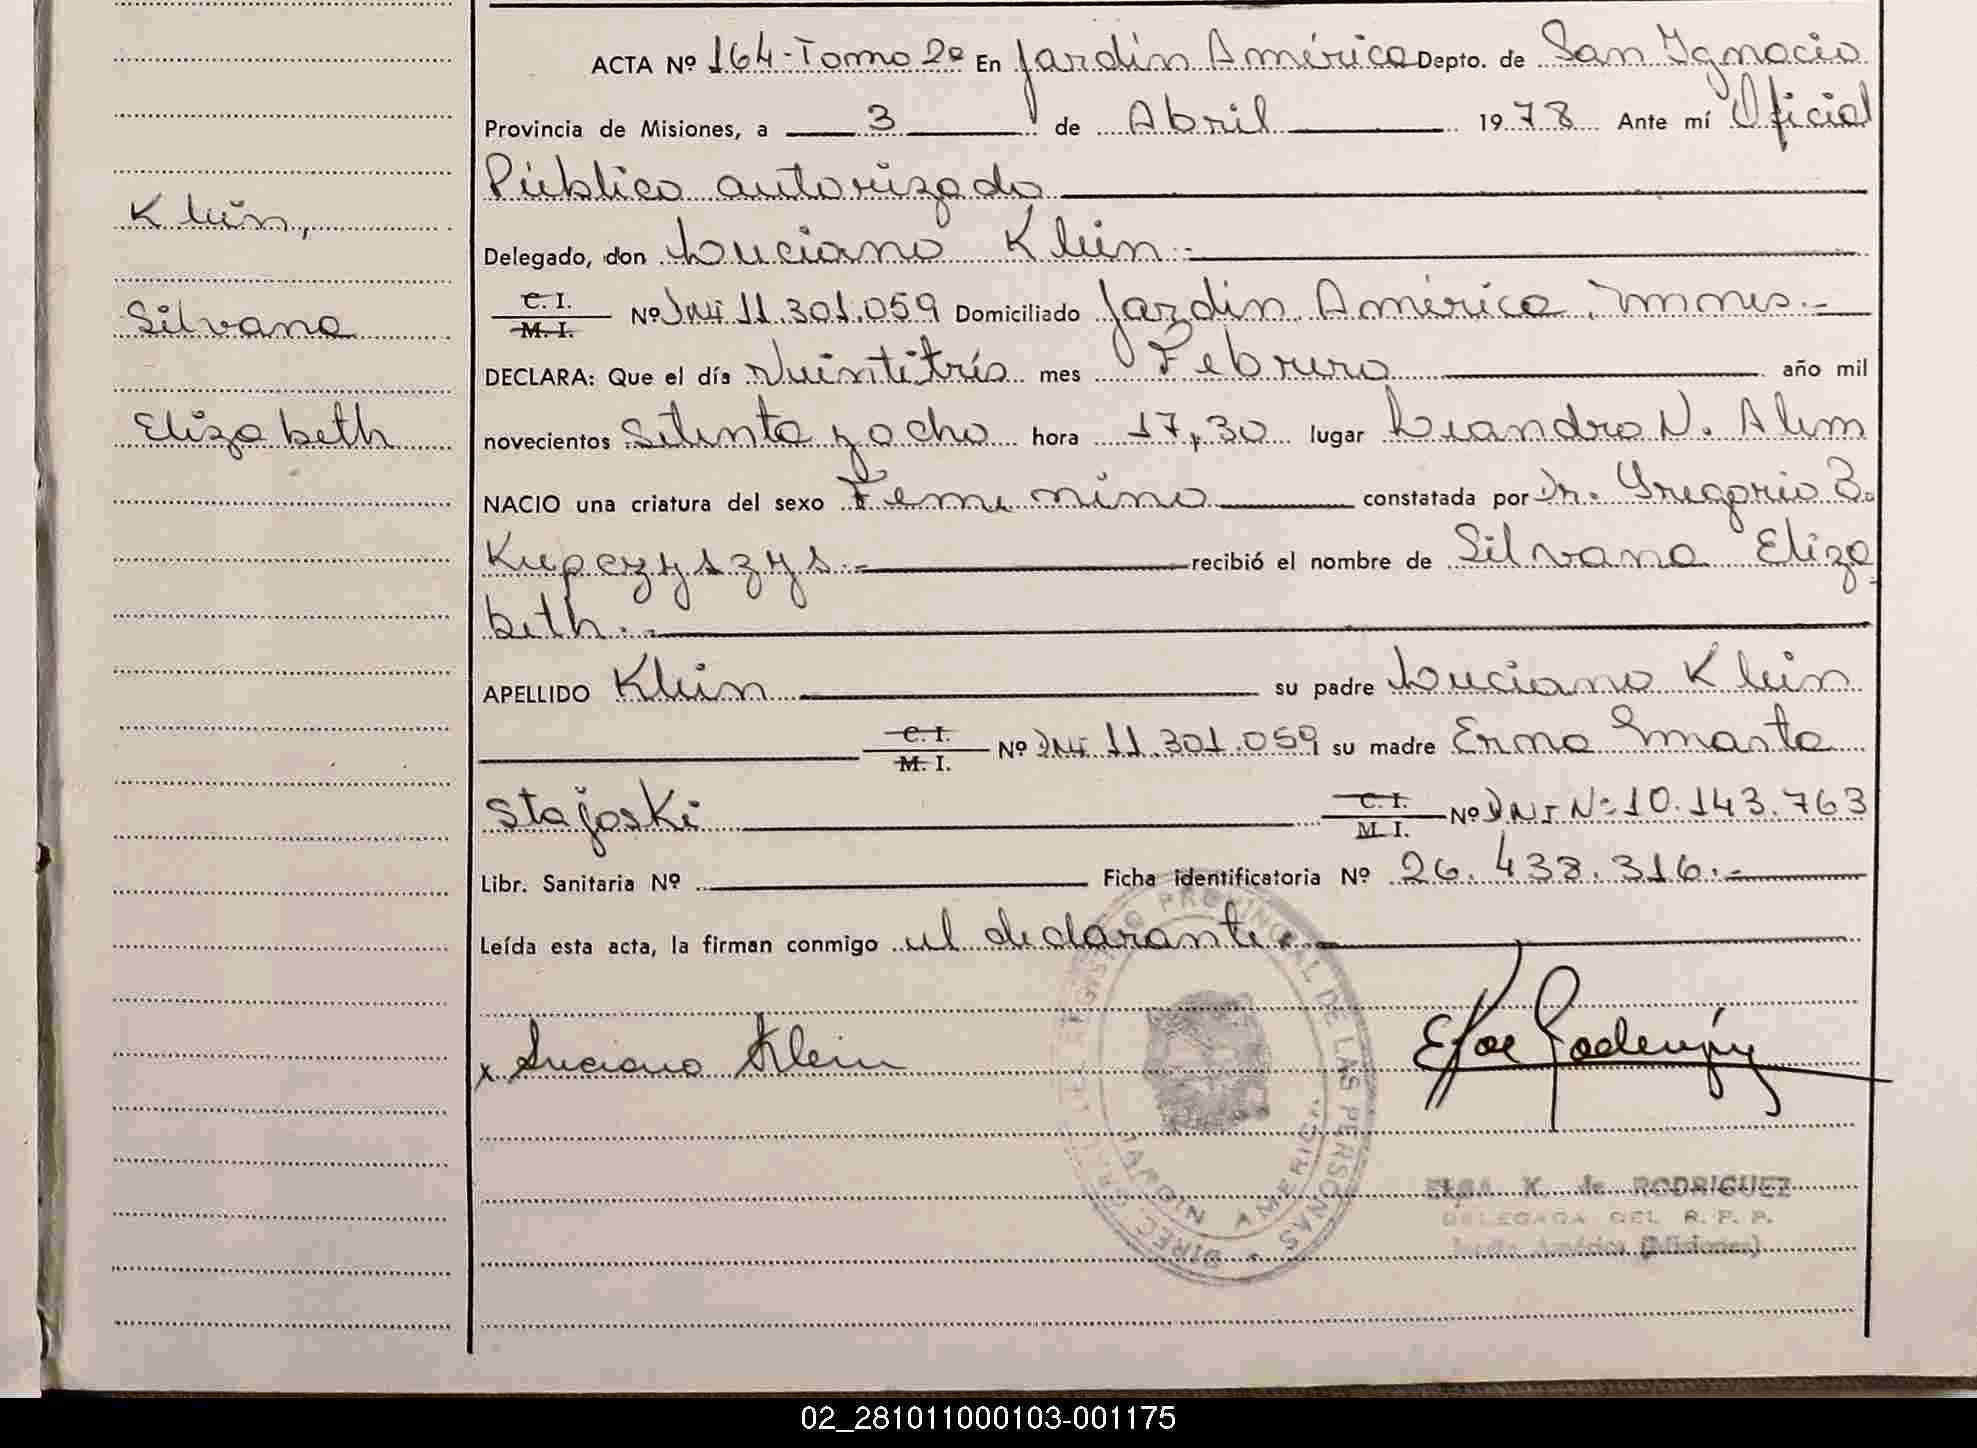 ACTA Nº 164-Tomo 2º En Jardín América Depto. de San Ignacio
Provincia de Misiones, a 3 de Abril 1978 Ante mí Oficial
Público autorizado
Klein,
Delegado, don Luciano Klein.-
C. I.
M. I.
Nº DNI 11.301.059 Domiciliado Jardín América, Mnes.-
Silvana
DECLARA: Que el día Veintitrés mes Febrero año mil
Elizabeth
novecientos Setenta y ocho hora 17,30 lugar Leandro N. Alem
NACIO una criatura del sexo Femenino constatada por Dr. Gregorio B.
Kupczyszys.- recibió el nombre de Silvana Eliza
beth.-
APELLIDO Klein su padre Luciano Klein
C. I.
M. I.
Nº DNI 11.301.059 su madre Erma Marta
Stajoski
C. I.
M. I.
Nº DNI Nº 10.143.763
Libr. Sanitaria Nº Ficha identificatoria Nº 26.438.316.-
Leída esta acta, la firman conmigo el declarante.-
x Luciano Klein
DIREC. GRAL. DEL REGISTRO PROVINCIAL DE LAS PERSONAS
JARDIN AMERICA
ELSA K. de RODRIGUEZ
DELEGADA DEL R. P. P.
Jardín América (Misiones)
02_281011000103-001175